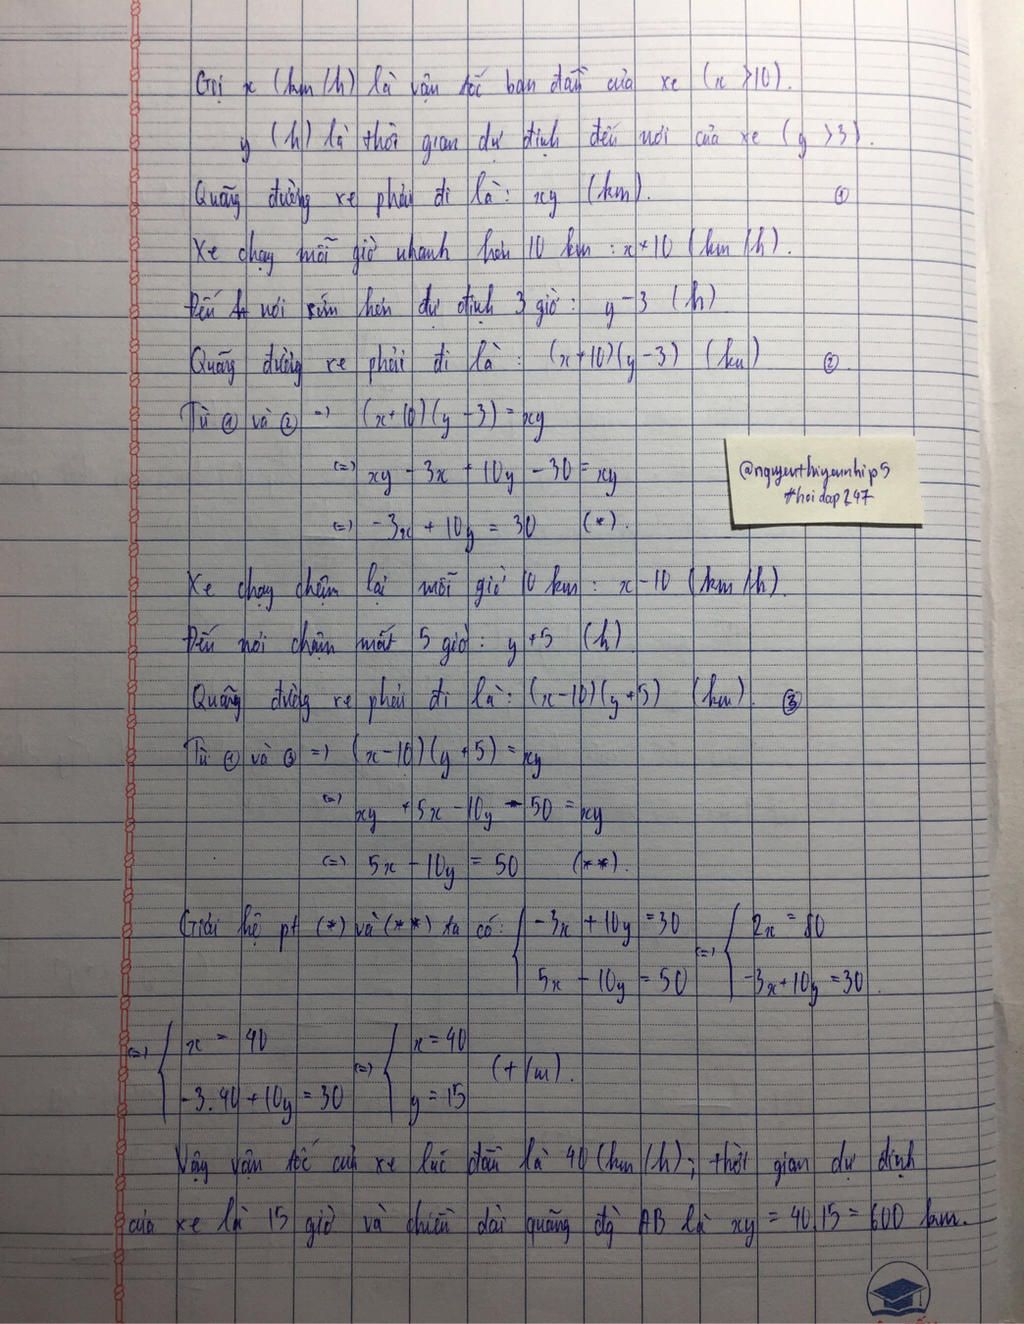 Gọi x (km/h) là vận tốc ban đầu của xe (x >10).
y (h) là thời gian dự định đến nơi của xe (y >3).
Quãng đường xe phải đi là: xy (km). ①
Xe chạy mỗi giờ nhanh hơn 10 km : x+10 (km/h).
Đến nơi sớm hơn dự định 3 giờ: y-3 (h)
Quãng đường xe phải đi là: (x+10)(y-3) (km) ②
Từ ① và ② => (x+10)(y-3) = xy
<=> xy - 3x + 10y - 30 = xy
<=> -3x + 10y = 30 (*).
@nguyenthiyennhip5
#hoidap247
Xe chạy chậm lại mỗi giờ 10 km: x-10 (km/h).
Đến nơi chậm mất 5 giờ: y+5 (h)
Quãng đường xe phải đi là: (x-10)(y+5) (km). ③
Từ ① và ③ => (x-10)(y+5) = xy
<=> xy +5x -10y - 50 = xy
<=> 5x - 10y = 50 (**).
Giải hệ pt (*) và (**) ta có: { -3x + 10y = 30 <=> { 2x = 80
5x - 10y = 50 -3x+10y = 30.
<=> { x = 40 <=> { x = 40 (t/m).
-3.40+10y = 30 y = 15
Vậy vận tốc của xe lúc đầu là 40 (km/h); thời gian dự định
của xe là 15 giờ và chiều dài quãng đg AB là xy = 40.15 = 600 km.